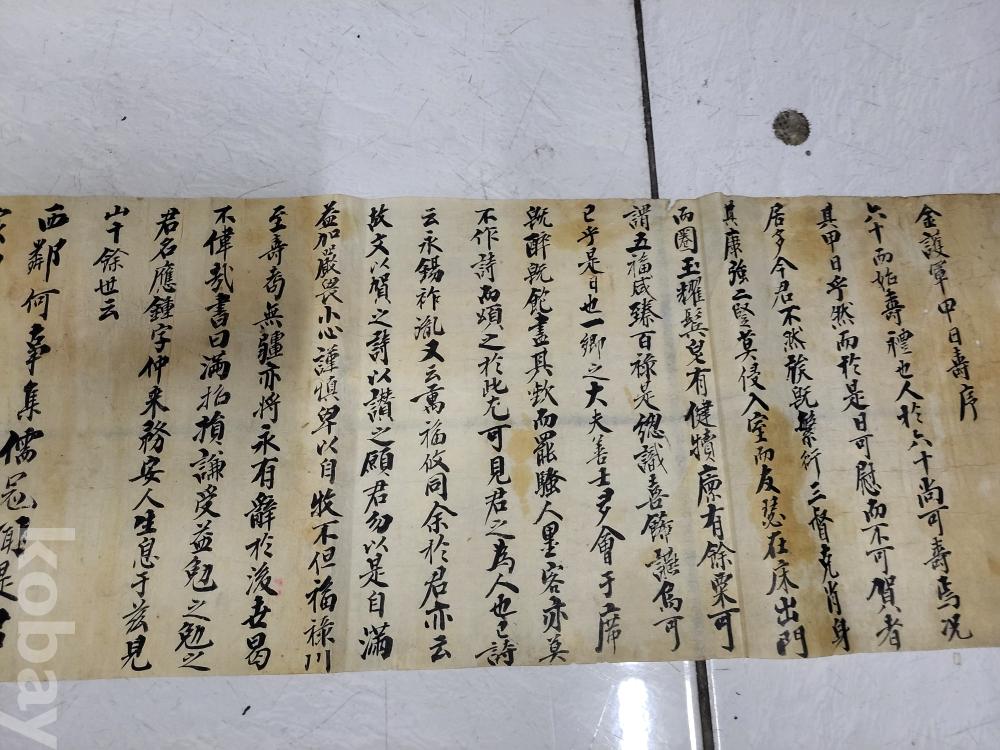 金護軍甲日壽序
六十而始壽禮也人於六十尚可壽焉况
其甲日乎然而於是日可慰而不可賀者
居多今君不然族旣繁衍三督克肖身
其康強二竪莫侵入室而友瑟在床出門
而圈玉耀鬂皂有健犢廩有餘粟可
謂五福咸臻百祿是總識喜篩謠烏可
已乎是日也一鄉之大夫善士多會于席
旣醉旣飽盡其歡而罷騷人墨客亦莫
不作詩而頌之於此尤可見君之為人也詩
云永錫祚胤又云萬福攸同余於君亦云
故文以賀之詩以讚之願君勿以是自滿
益加嚴畏小心謹慎卑以自牧不但福祿川
至壽耉無疆亦將永有辭於後世曷
不偉哉書曰滿招損謙受益勉之勉之
君名應鍾字仲来務安人生息于玆見
山十餘世云
西鄰何事集儒冠
kobay